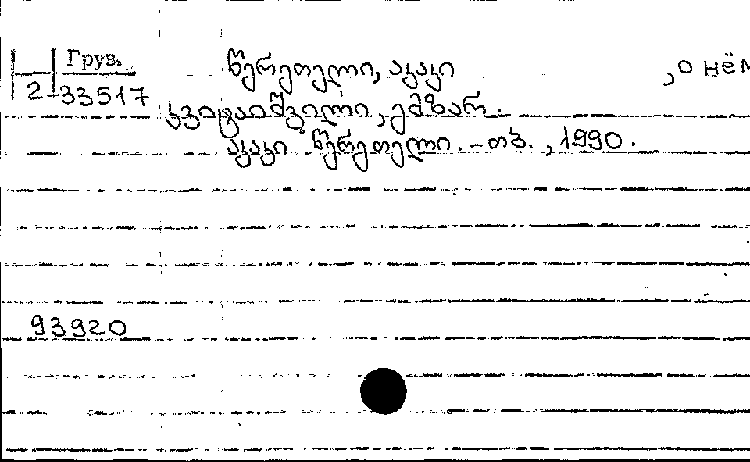 Груз. წერეთელი, აკაკი ,о нём
2-33517
კვიტაიშვილი, ემზარ.
აკაკი წერეთელი. - თბ., 1990.
93920